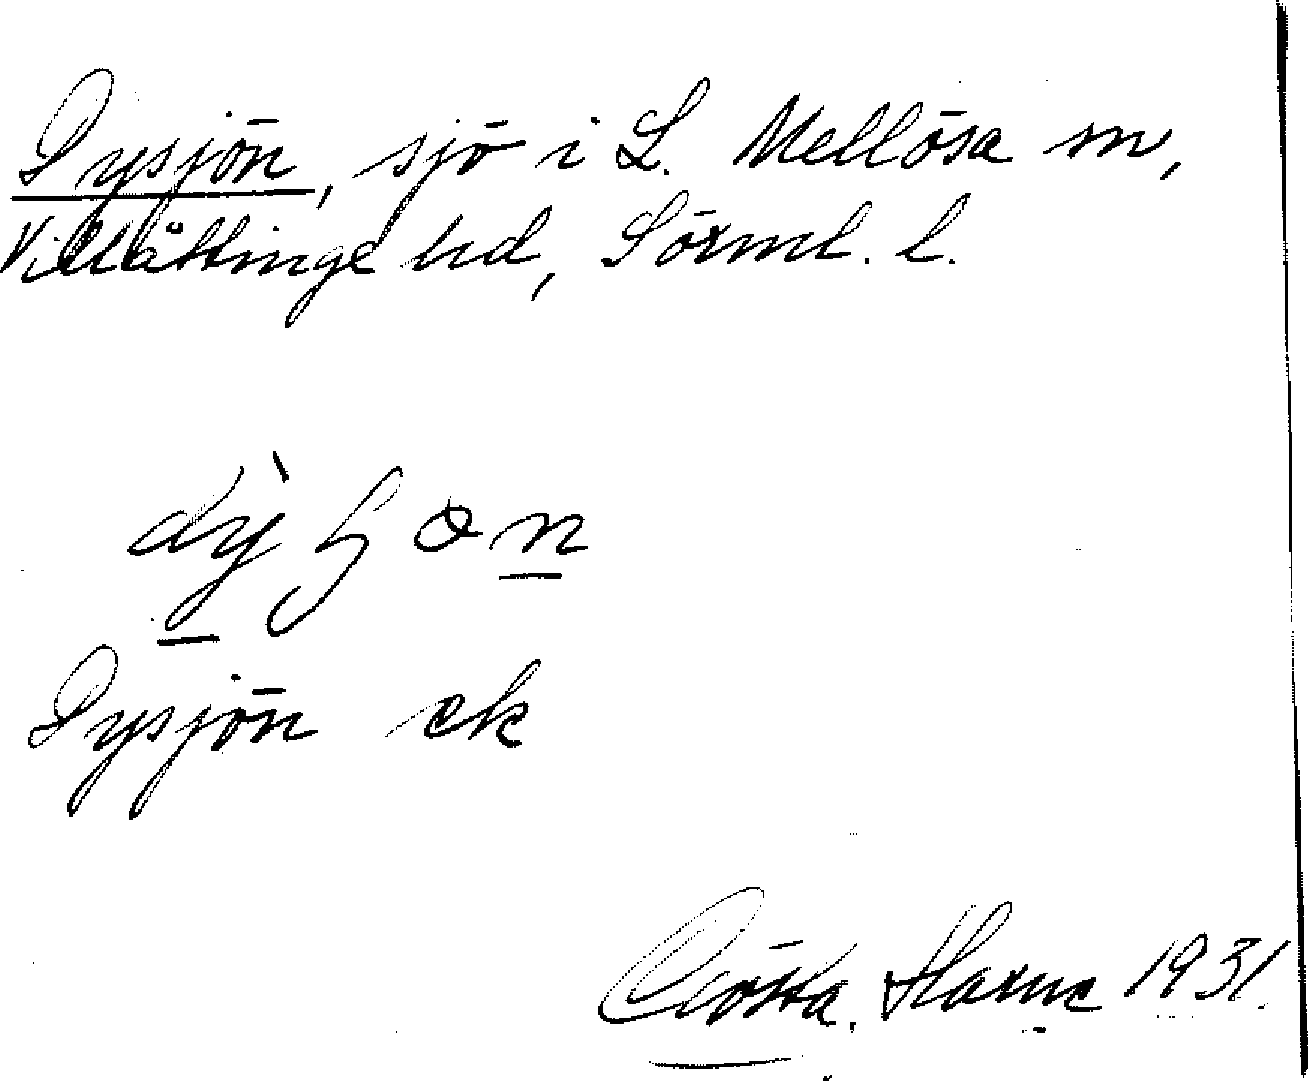 Dysjön, sjö i L. Mellösa sn,
Villåttinge hd, Sörml. l.
dỳʃɷn
Dysjön ek
Gösta. 1931.